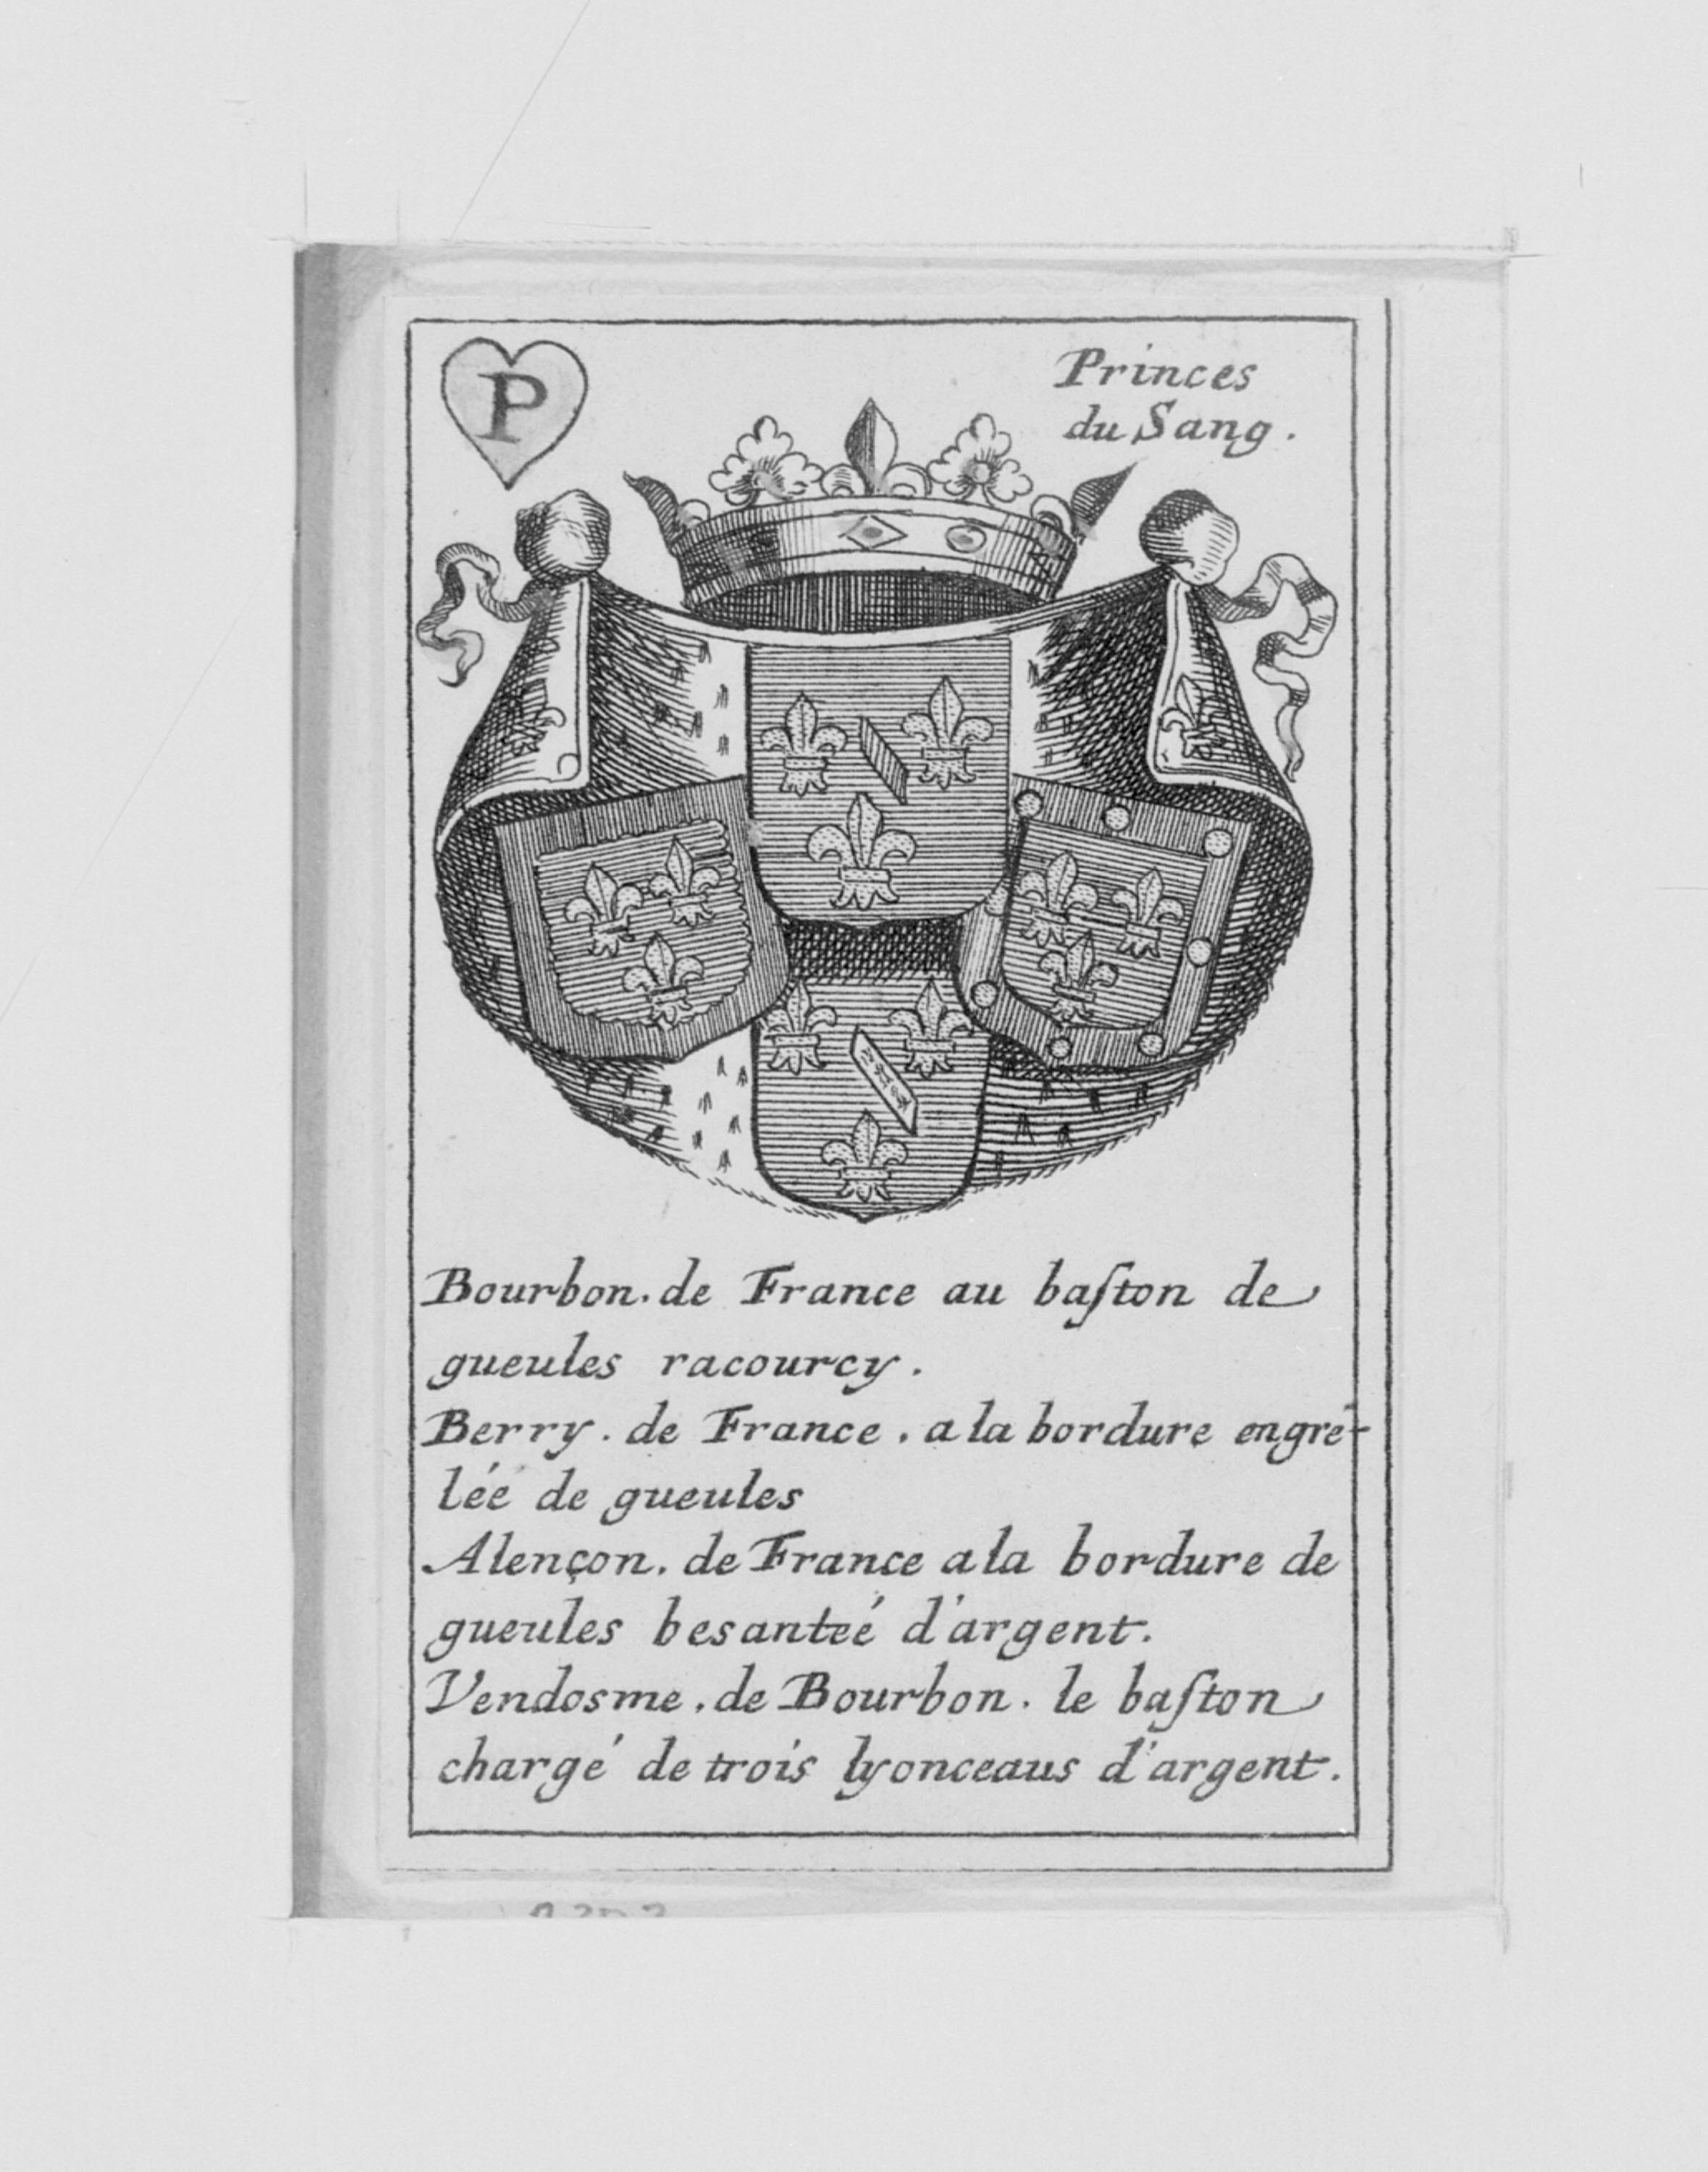 P
Princes
du Sang.
Bourbon. de France au baſton de
gueules racourcy.
Berry. de France. a la bordure engré-
lée de gueules
Alençon. de France a la bordure de
gueules besanteé d'argent.
Vendosme. de Bourbon. le baſton
chargé de trois lyonceaus d'argent.